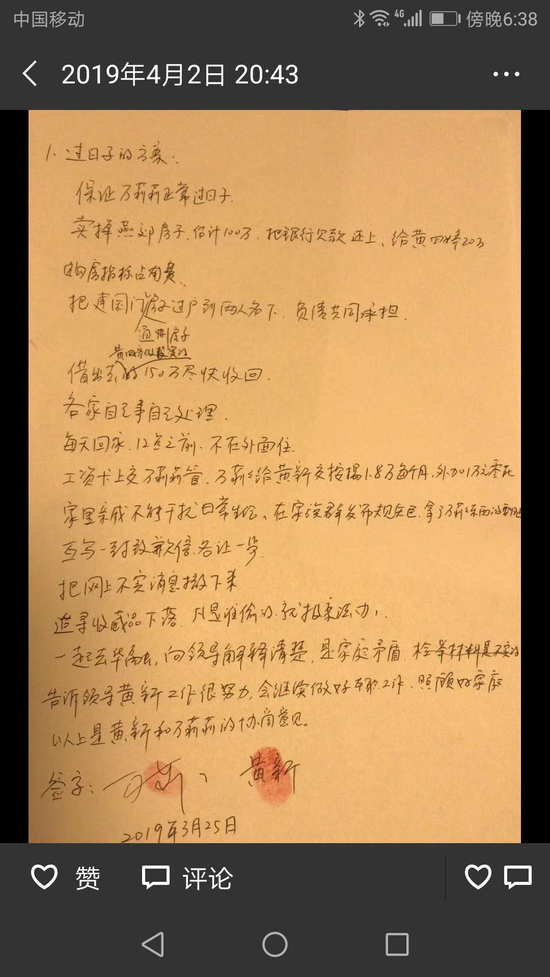 中国移动 4G 傍晚6:38
2019年4月2日 20:43
1、过日子的方案、
保证万莉莉正常过日子
卖掉燕郊房子、估计100万、把银行欠款还上、给黄四婷20万
购房指标占用费
把建国门房子过户到两人名下、负债共同承担.
通州房子
借出去的150万尽快收回.
各家自己事自己处理.
每天回家、12点之前、不在外面住
工资卡上交万莉莉管、万莉莉给黄新交按揭1.8万每个月、外加1万元零花
家里亲戚不能干扰日常生活、在家族群发布规矩、拿了万莉莉东西的
互写一封致歉信、各让一步
把网上不实消息撤下来
追寻收藏品下落、凡是谁偷的、就报案法办.
一起去华融、向领导解释清楚、是家庭矛盾、检举材料是不实的
告诉领导黄新工作很努力、会继续做好本职工作、照顾好家庭
以上是黄新和万莉莉的协商意见。
签字: 黄新
2019年3月25日
赞 评论